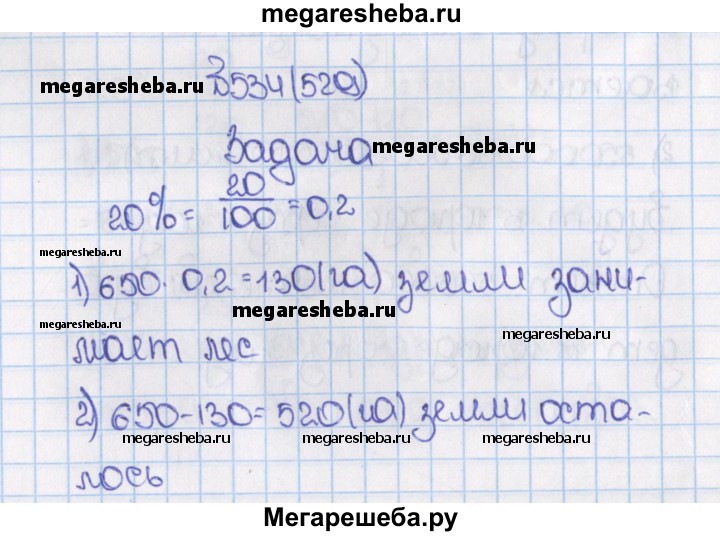 megaresheba.ru
№534(529)
megaresheba.ru
Задача megaresheba.ru
20%= 20/100 =0,2
megaresheba.ru
1) 650·0,2=130(га) земли зани-
megaresheba.ru
megaresheba.ru
megaresheba.ru
мает лес
2) 650-130=520(га) земли оста-
megaresheba.ru megaresheba.ru megaresheba.ru
лось
Мегарешеба.ру